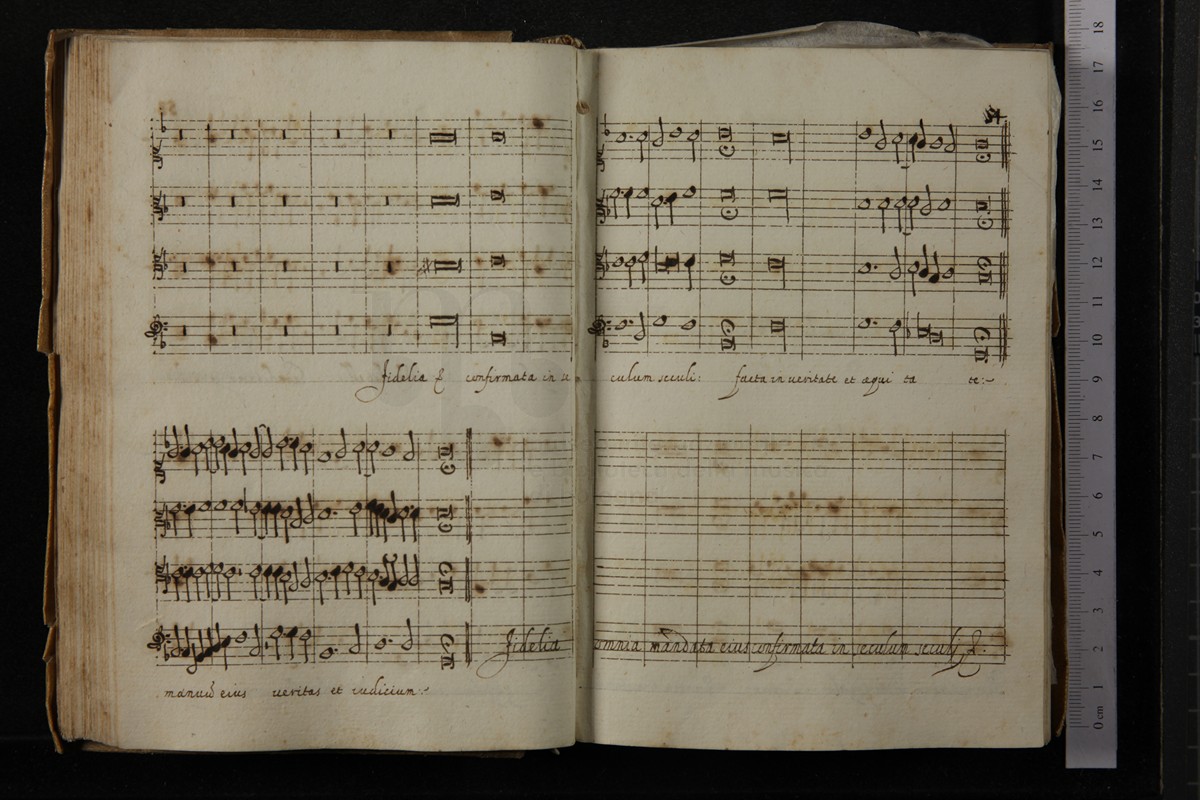 fidelia & confirmata in se culum seculi: facta in veritate et æqui ta te:~
fidelia omnia mãndata eius confirmata in seculum seculi &:
manuũ eius veritas et iudicium:~
18
17
16
15
14
13
12
11
10
9
8
7
6
5
4
3
2
1
0 cm